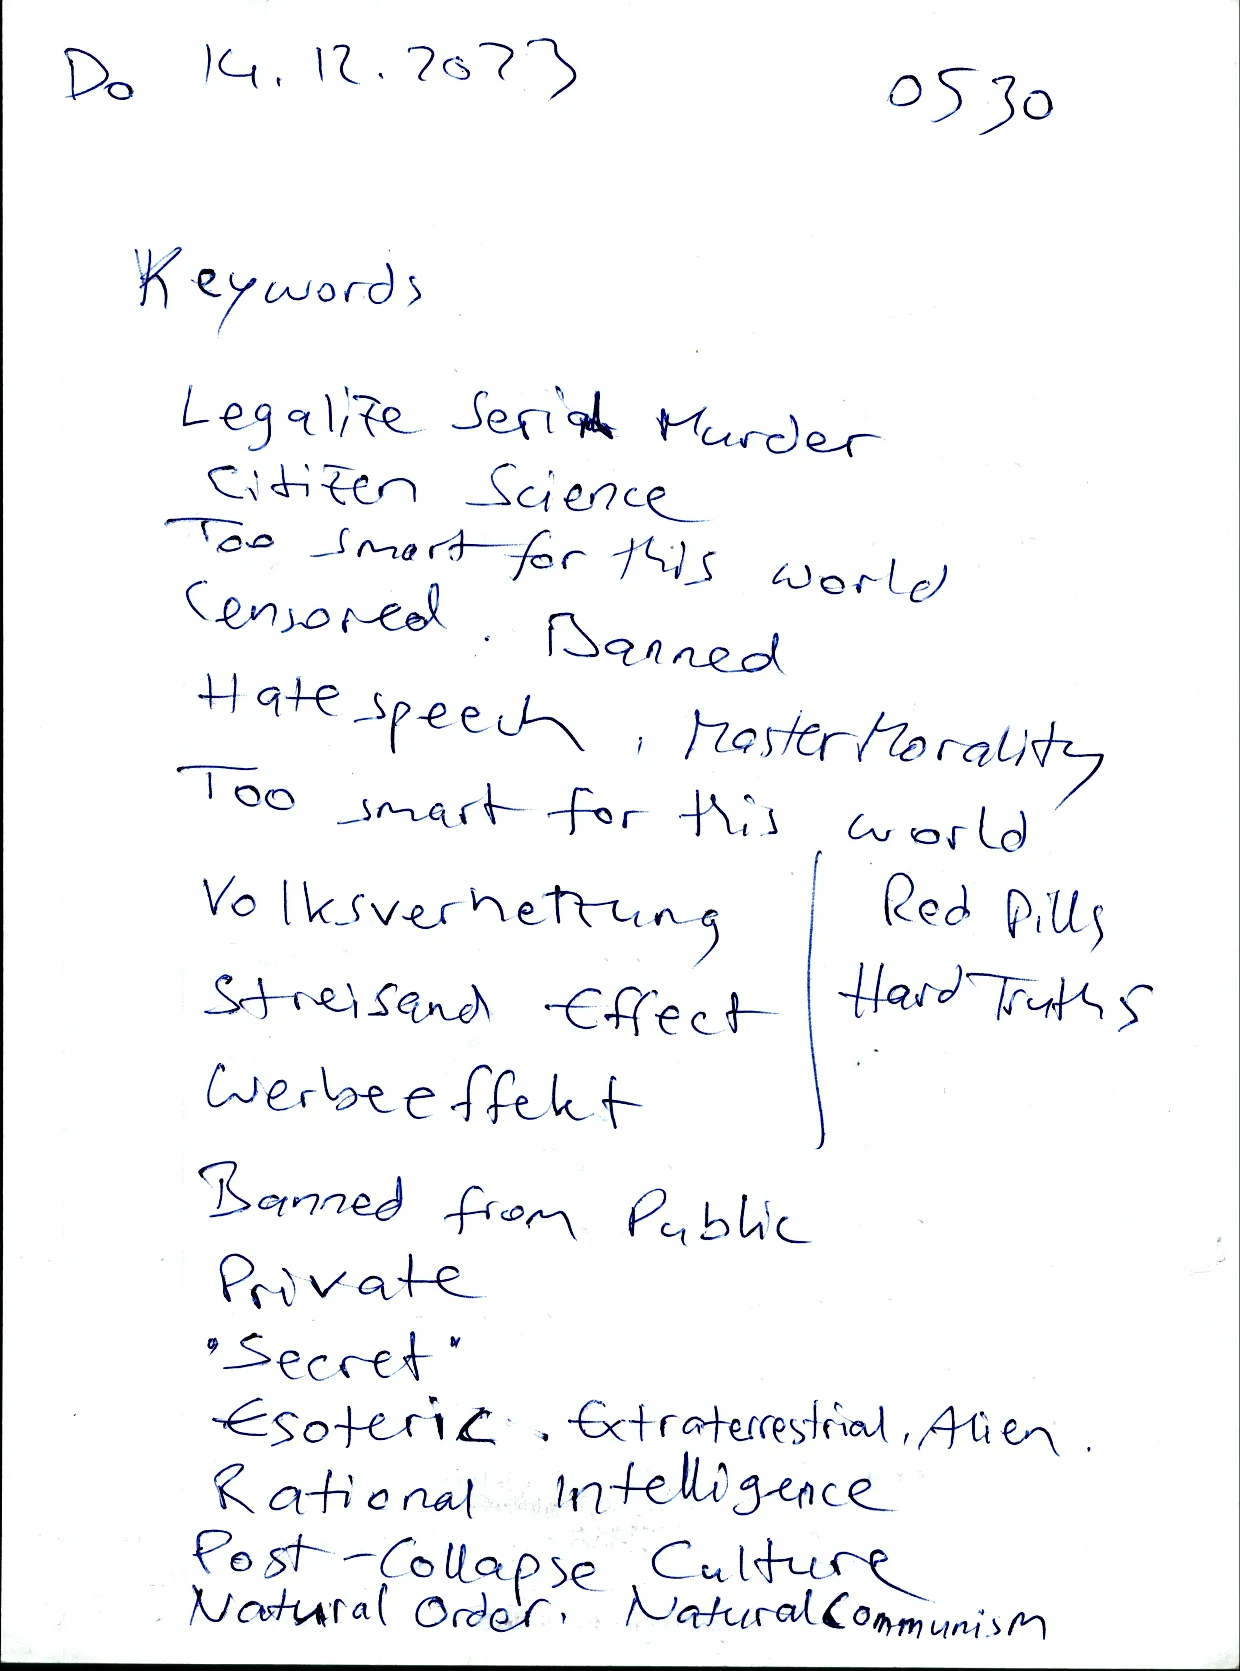 Do 14.12.2023 0530
Keywords
Legalize Serial Murder
Citizen Science
Too smart for this world
Censored. Banned
Hate speech, MasterMorality
Too smart for this world
Volksverhetzung
Streisand Effect
Werbeeffekt
Red Pills
Hard Truths
Banned from Public
Private
"Secret"
Esoteric. Extraterrestrial, Alien.
Rational Intelligence
Post-Collapse Culture
Natural Order. Natural Communism